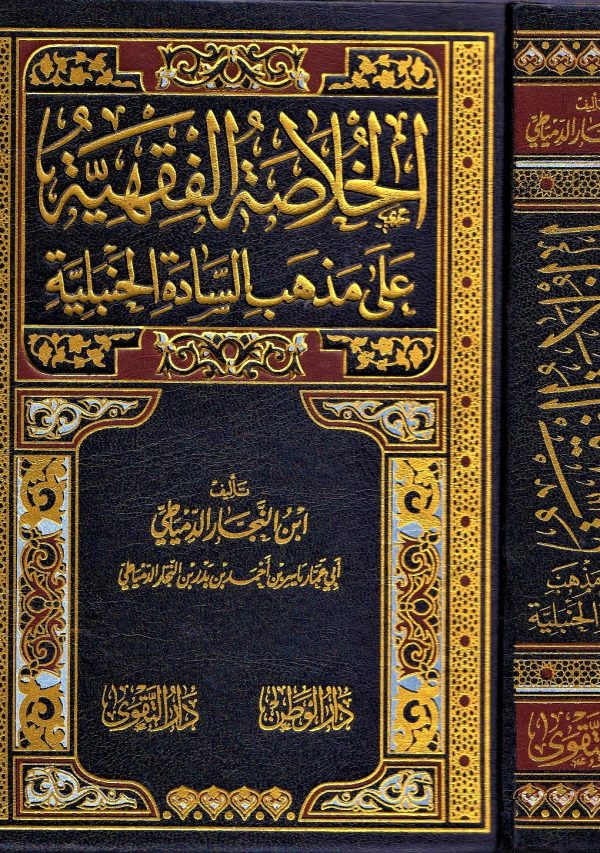 الخُلَاصَةُ الْفِقْهِيَّةُ
عَلَى مَذْهَبِ السَّادَةِ الْحَنْبَلِيَّةِ
تَأْلِيف
ابْنُ النَّجَّارِ الدِّمْيَاطِيّ
أَبِي عَمَّار يَاسِر بْن أَحْمَد بْن بَدْر بْن النَّجَّار الدِّمْيَاطِيّ
دَارُ الْوَطَن
دَارُ التَّقْوَى
تأليف
الدمياطي
مذهب
الحنبلية
التقوى